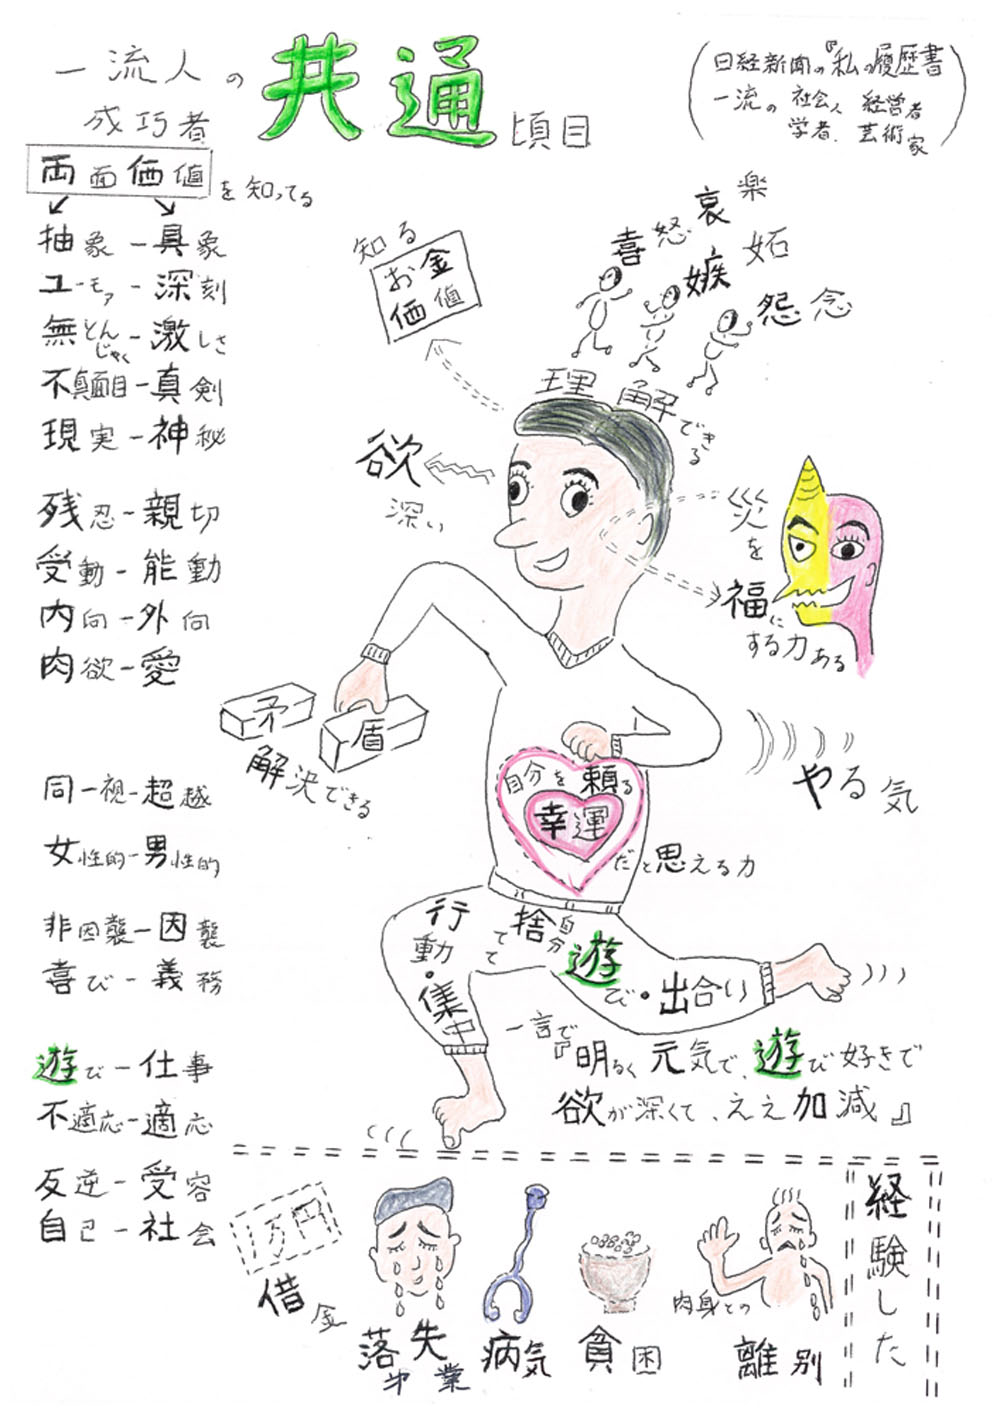 一流人の
成巧者
共通項目
(日経新聞の『私の履歴書
一流の 社会人 経営者
学者、芸術家)
両面価値を知ってる
抽象－具象
ユーモア－深刻
無とんじゃく－激しさ
不真面目－真剣
現実－神秘
残忍－親切
受動－能動
内向－外向
肉欲－愛
同一視－超越
女性的－男性的
非因襲－因襲
喜び－義務
遊び－仕事
不適応－適応
反逆－受容
自己－社会
知る
お金
価値
喜怒哀楽
嫉妬
怨念
理解できる
欲
深い
災を
福に
する力ある
矛盾
解決できる
やる気
自分を頼る
幸運
だと思える力
行動・集中
自分
捨てて
遊び・出合い
一言で
『明るく元気で、遊び好きで
欲が深くて、ええ加減』
経験した
1万円
借金
落第
失業
病気
貧困
肉身との
離別